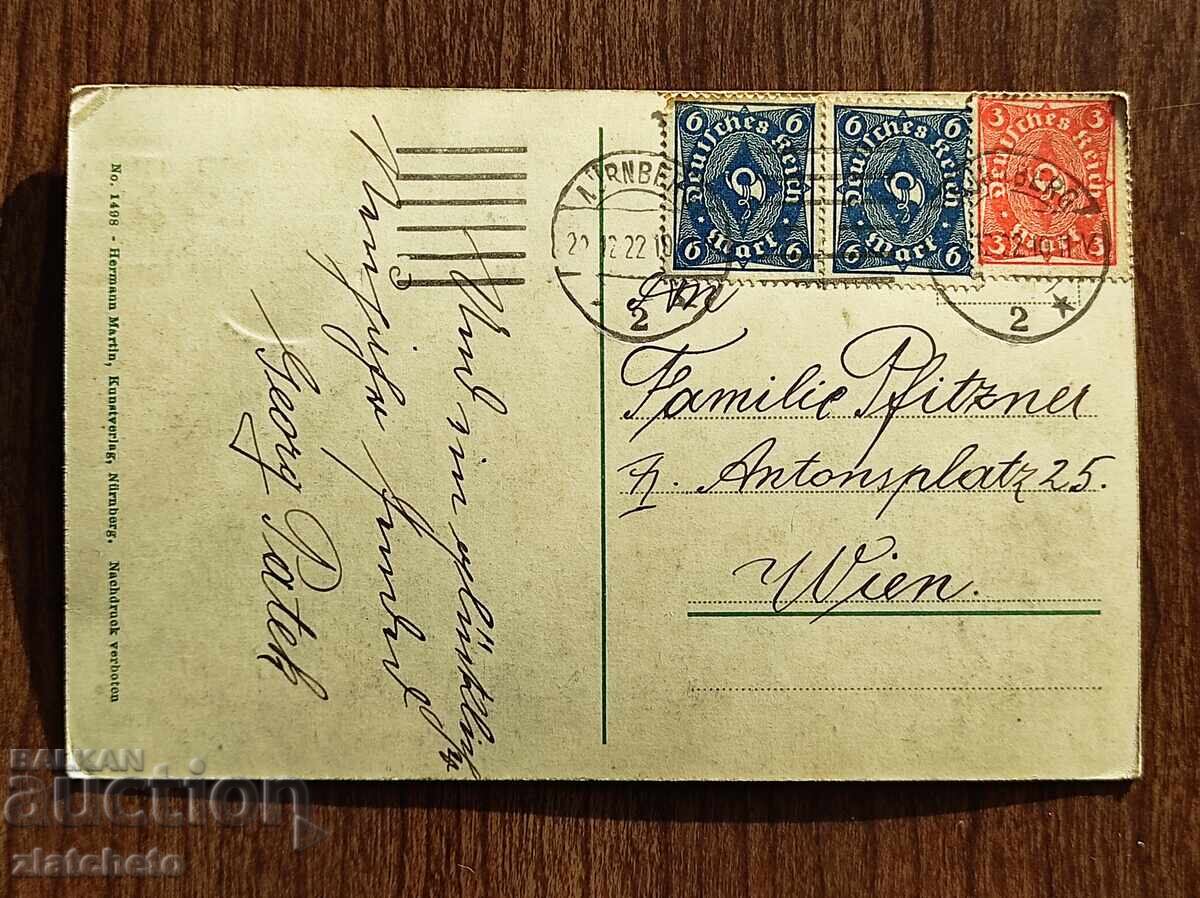 No. 1498 - Hermann Martin, Kunstverlag, Nürnberg, Nachdruck verboten
Und ein glückliches
Georg Patek
6 6
Deutsches Reich
Mark
6 6
6 6
Deutsches Reich
Mark
6 6
3 3
Deutsches Reich
Mark
3 3
NÜRNBERG
12.22
2
2
An
Familie Pfitzner
Antonsplatz 25.
Wien.
BALKAN
auction
zlatcheto